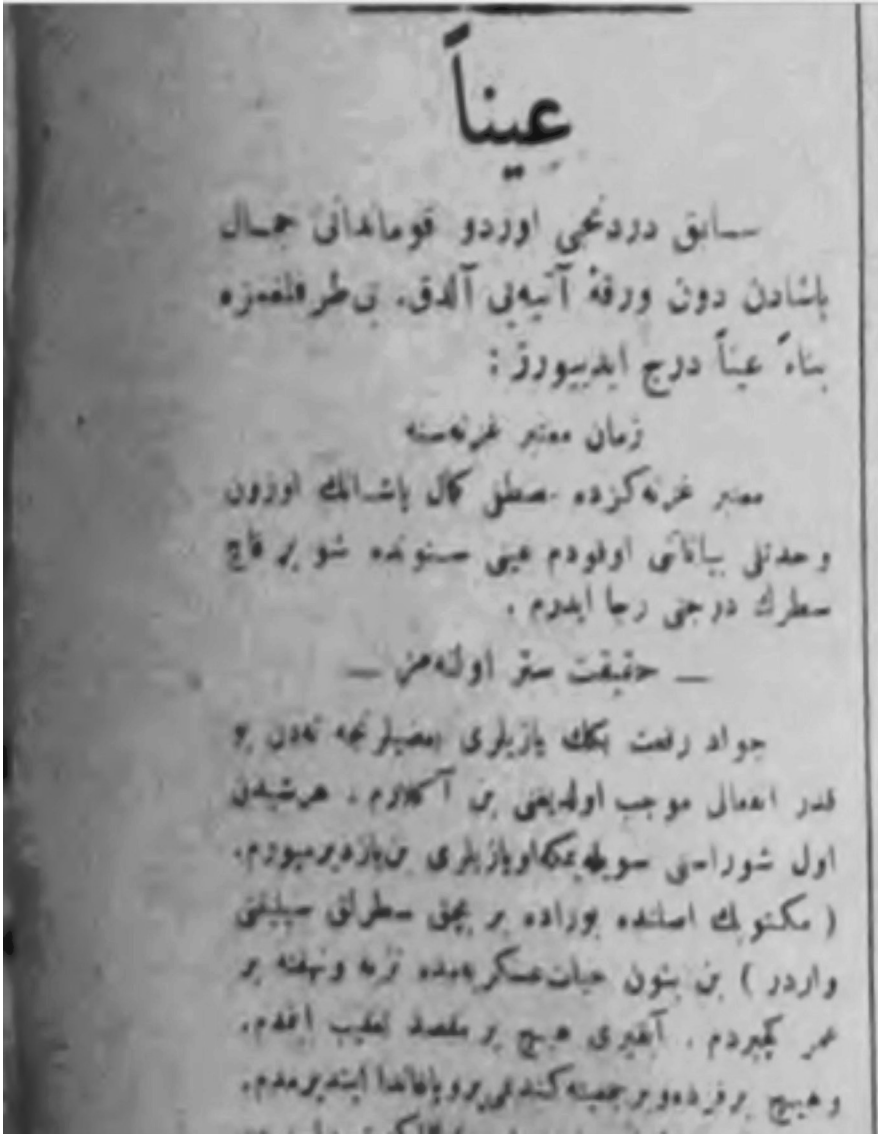 عيناً
سابق دردنجی اوردو قوماندانی جمال
پاشادن دون ورقهٔ آتیه‌یی آلدق. بی‌طرفلغمزه
بناءً عیناً درج ایدییورز :
زمان معتبر غزته‌سنه
معتبر غزته‌کزده مصطفی کمال پاشانك اوزون
و حدتلی بیاناتنی اوقودم عینی ستونده شو بر قاچ
سطرك درجنی رجا ایدرم .
— حقیقت ستر اولنه‌مز —
جواد رفعت بكك یازیلری بعضیلرنجه نه‌دن بو
قدر انفعالی موجب اولدیغنی بن آكلارم . هرشیدن
اول شوراسنی سویله‌یمكه او یازیلری بن یازدیرمیورم.
( مكتوبك اصلنده بوراده بر بچق سطرلق سیلیتی
واردر ) بن بتون حیات عسكریه‌مده نزیه و نهفته بر
عمر كچیردم . آیقیری هیچ بر مقصد تعقیب ایتمدم.
و هیچ بر فرده و بر جمعیته كندمی پروپاغاندا ایتدیرمدم.